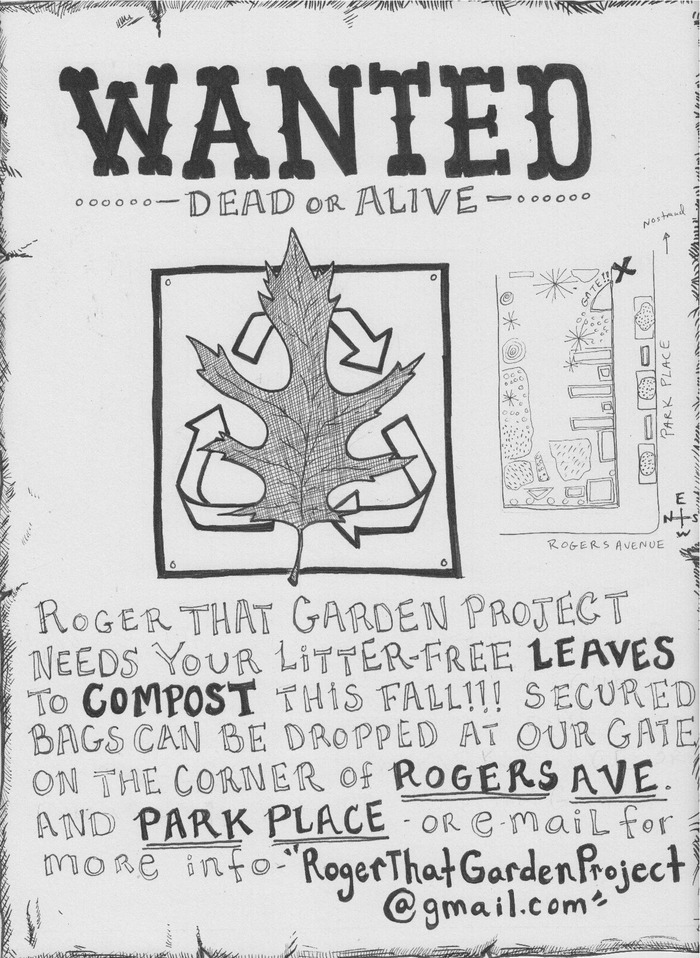 WANTED
DEAD OR ALIVE
Nostrand
GATE!!
X
PARK PLACE
E
N S
W
ROGERS AVENUE
ROGER THAT GARDEN PROJECT
NEEDS YOUR LITTER-FREE LEAVES
TO COMPOST THIS FALL!!! SECURED
BAGS CAN BE DROPPED AT OUR GATE
ON THE CORNER of ROGERS AVE.
AND PARK PLACE - OR e-mail for
more info - "RogerThatGardenProject
@gmail.com"